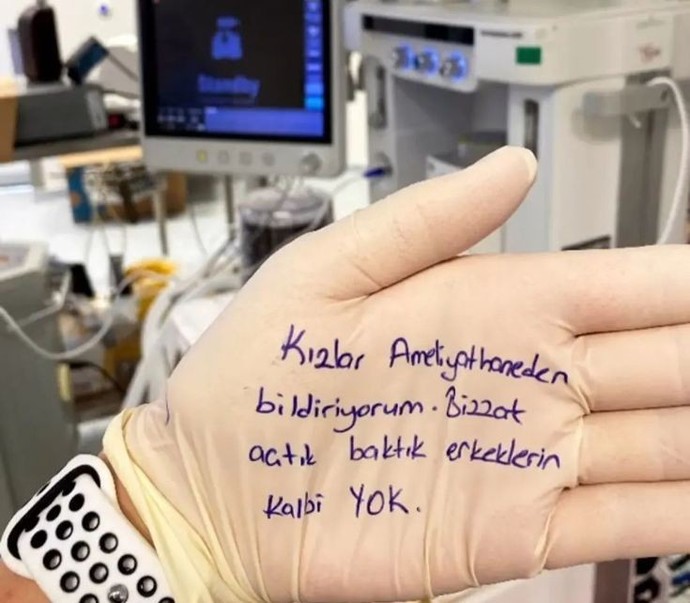 Standby
Kızlar Ameliyathaneden
bildiriyorum. Bizzat
açtık baktık erkeklerin
Kalbi YOK.